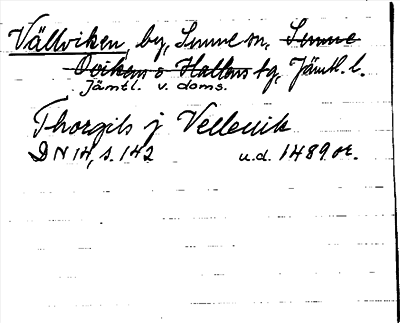 Vällviken, by, Sunne sn, Sunne
Ovikens o Hallens tg, Jämtl. l.
Jämtl. v. doms.
Thorgils j Velleuik
DN 14, s. 142 u.d. 1489 or.